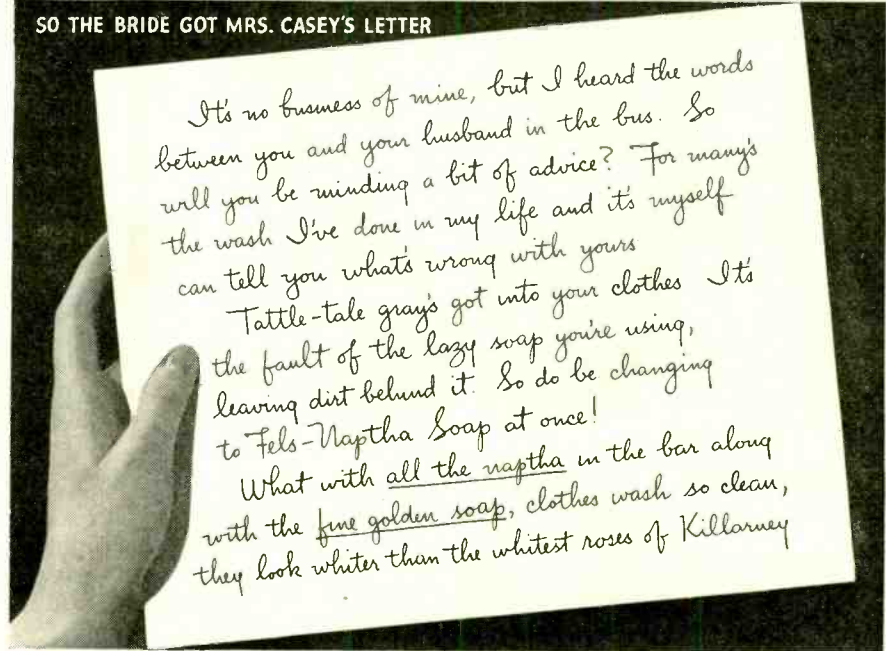 SO THE BRIDE GOT MRS. CASEY'S LETTER
It's no business of mine, but I heard the words
between you and your husband in the bus. So
will you be minding a bit of advice? For many's
the wash I've done in my life and it's myself
can tell you what's wrong with yours
Tattle-tale gray's got into your clothes It's
the fault of the lazy soap you're using,
leaving dirt behind it. So do be changing
to Fels-Naptha Soap at once!
What with all the naptha in the bar along
with the fine golden soap, clothes wash so clean,
they look whiter than the whitest roses of Killarney